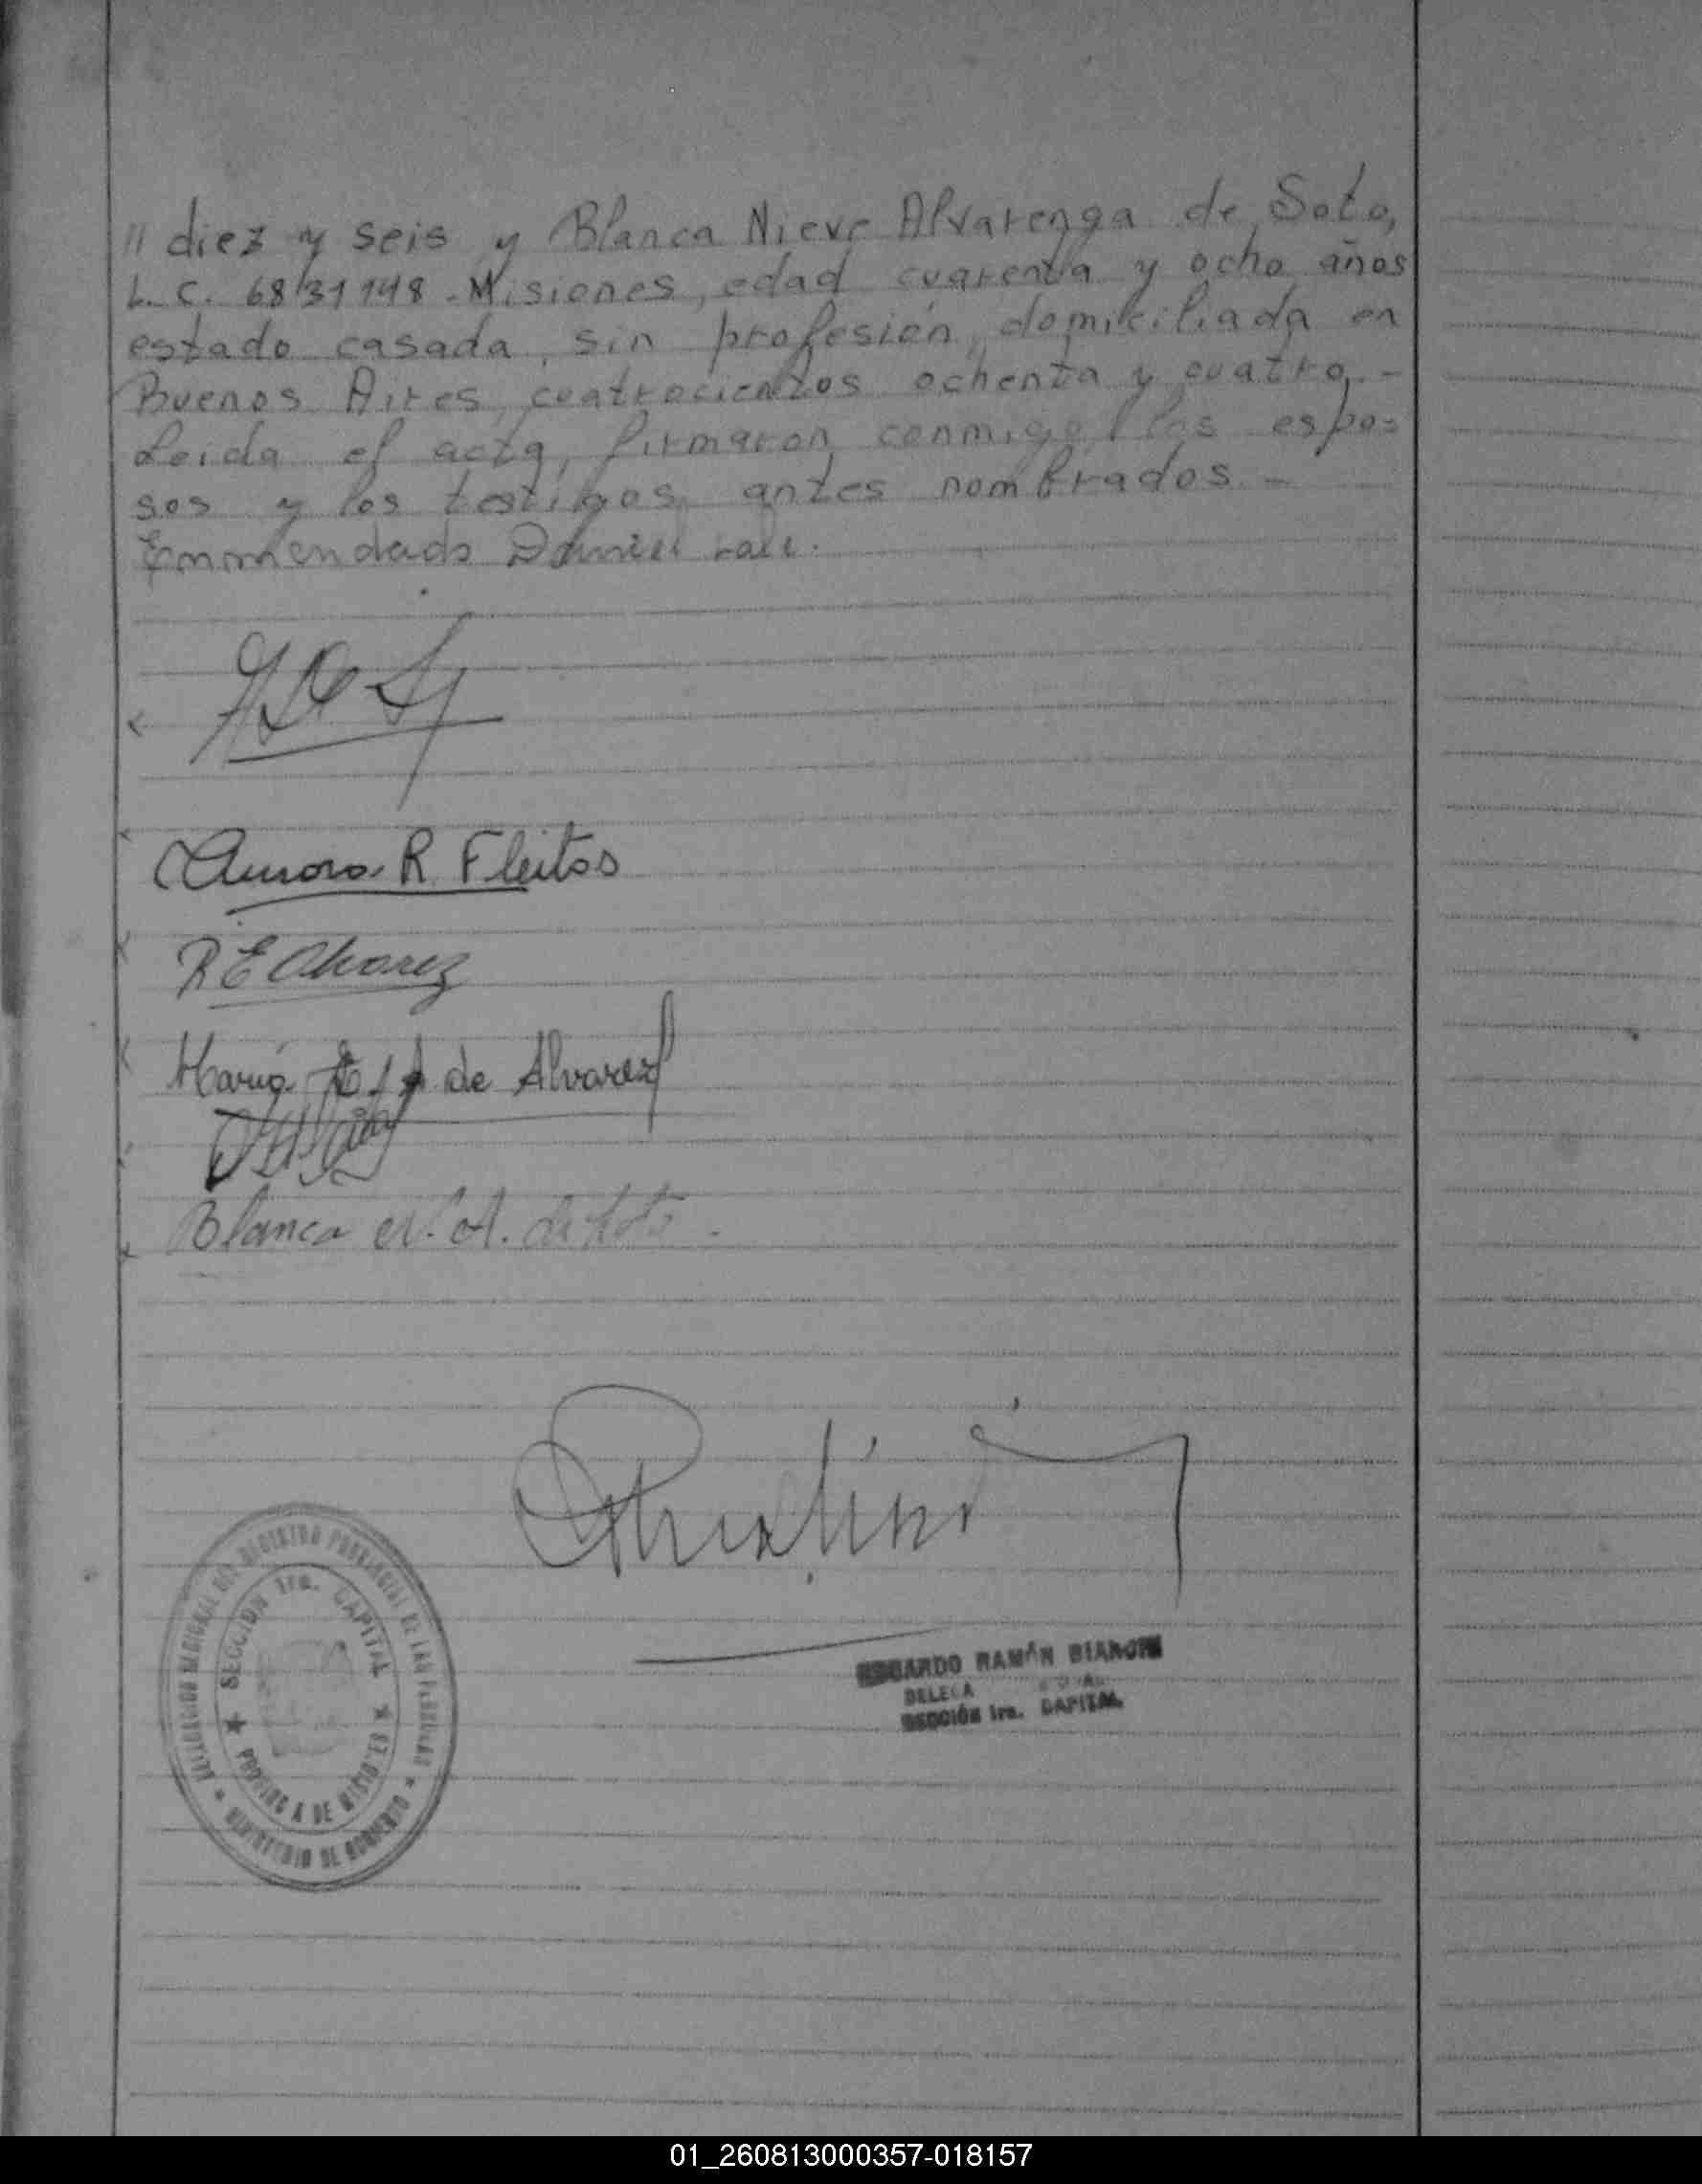 " diez y seis y Blanca Nieve Alvarenga de Soto,
L. C. 6831148 - Misiones, edad cuarenta y ocho años
estado casada, sin profesión, domiciliada en
Buenos Aires, cuatrocientos ochenta y cuatro. -
Leida el acta, firmaron conmigo los espo=
sos y los testigos antes nombrados -
Enmendado Daniel vale.
Aurora R. Fleitas
R E Alvarez
María de Alvarez
Blanca N. A. de Soto.
REGISTRO PROVINCIAL DE LAS PERSONAS
MINISTERIO DE GOBIERNO
SECCION 1ra. CAPITAL
PROVINCIA DE MISIONES
EDUARDO RAMÓN BIANCHI
SECCIÓN 1ra. CAPITAL
01_260813000357-018157